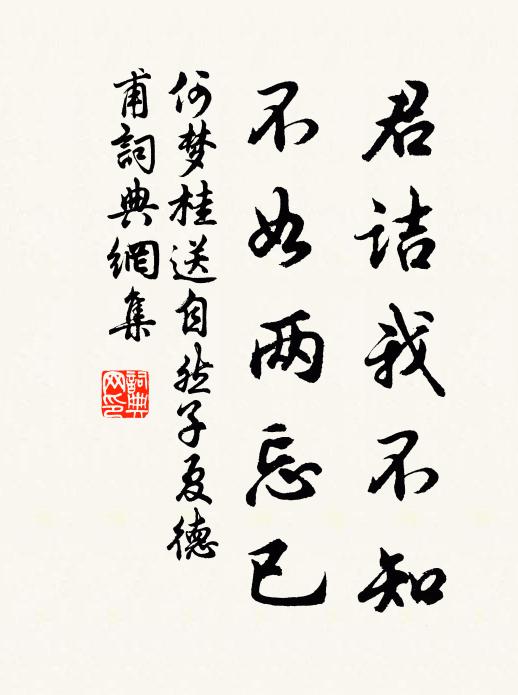 君诘我不知
不如两忘已
何梦桂送自然子夏德
甫詞典網集
詞典网印